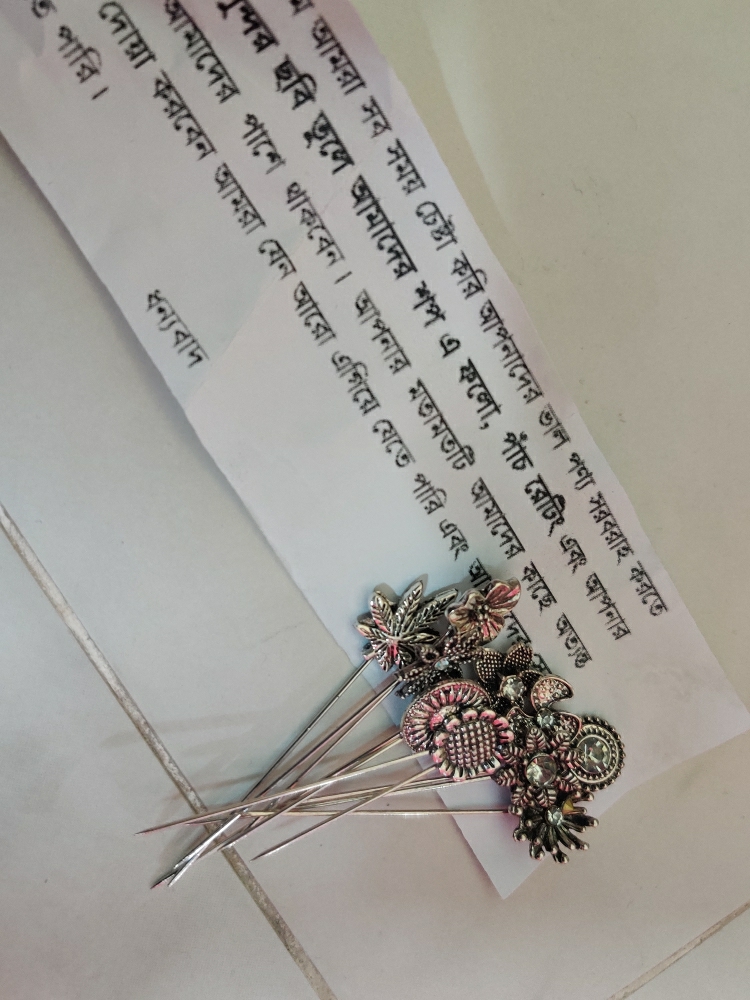 আমরা সব সময় চেষ্টা করি আপনাদের ভাল পণ্য সরবরাহ করতে
ছবি তুলে আমাদের শপ এ ফলো, পাঁচ রেটিং এবং আপনার
আমাদের পাশে থাকবেন। আপনার মতামতটি আমাদের কাছে অত্যন্ত
দোয়া করবেন আমরা যেন আরো এগিয়ে যেতে পারি এবং
পারি।
ধন্যবাদ